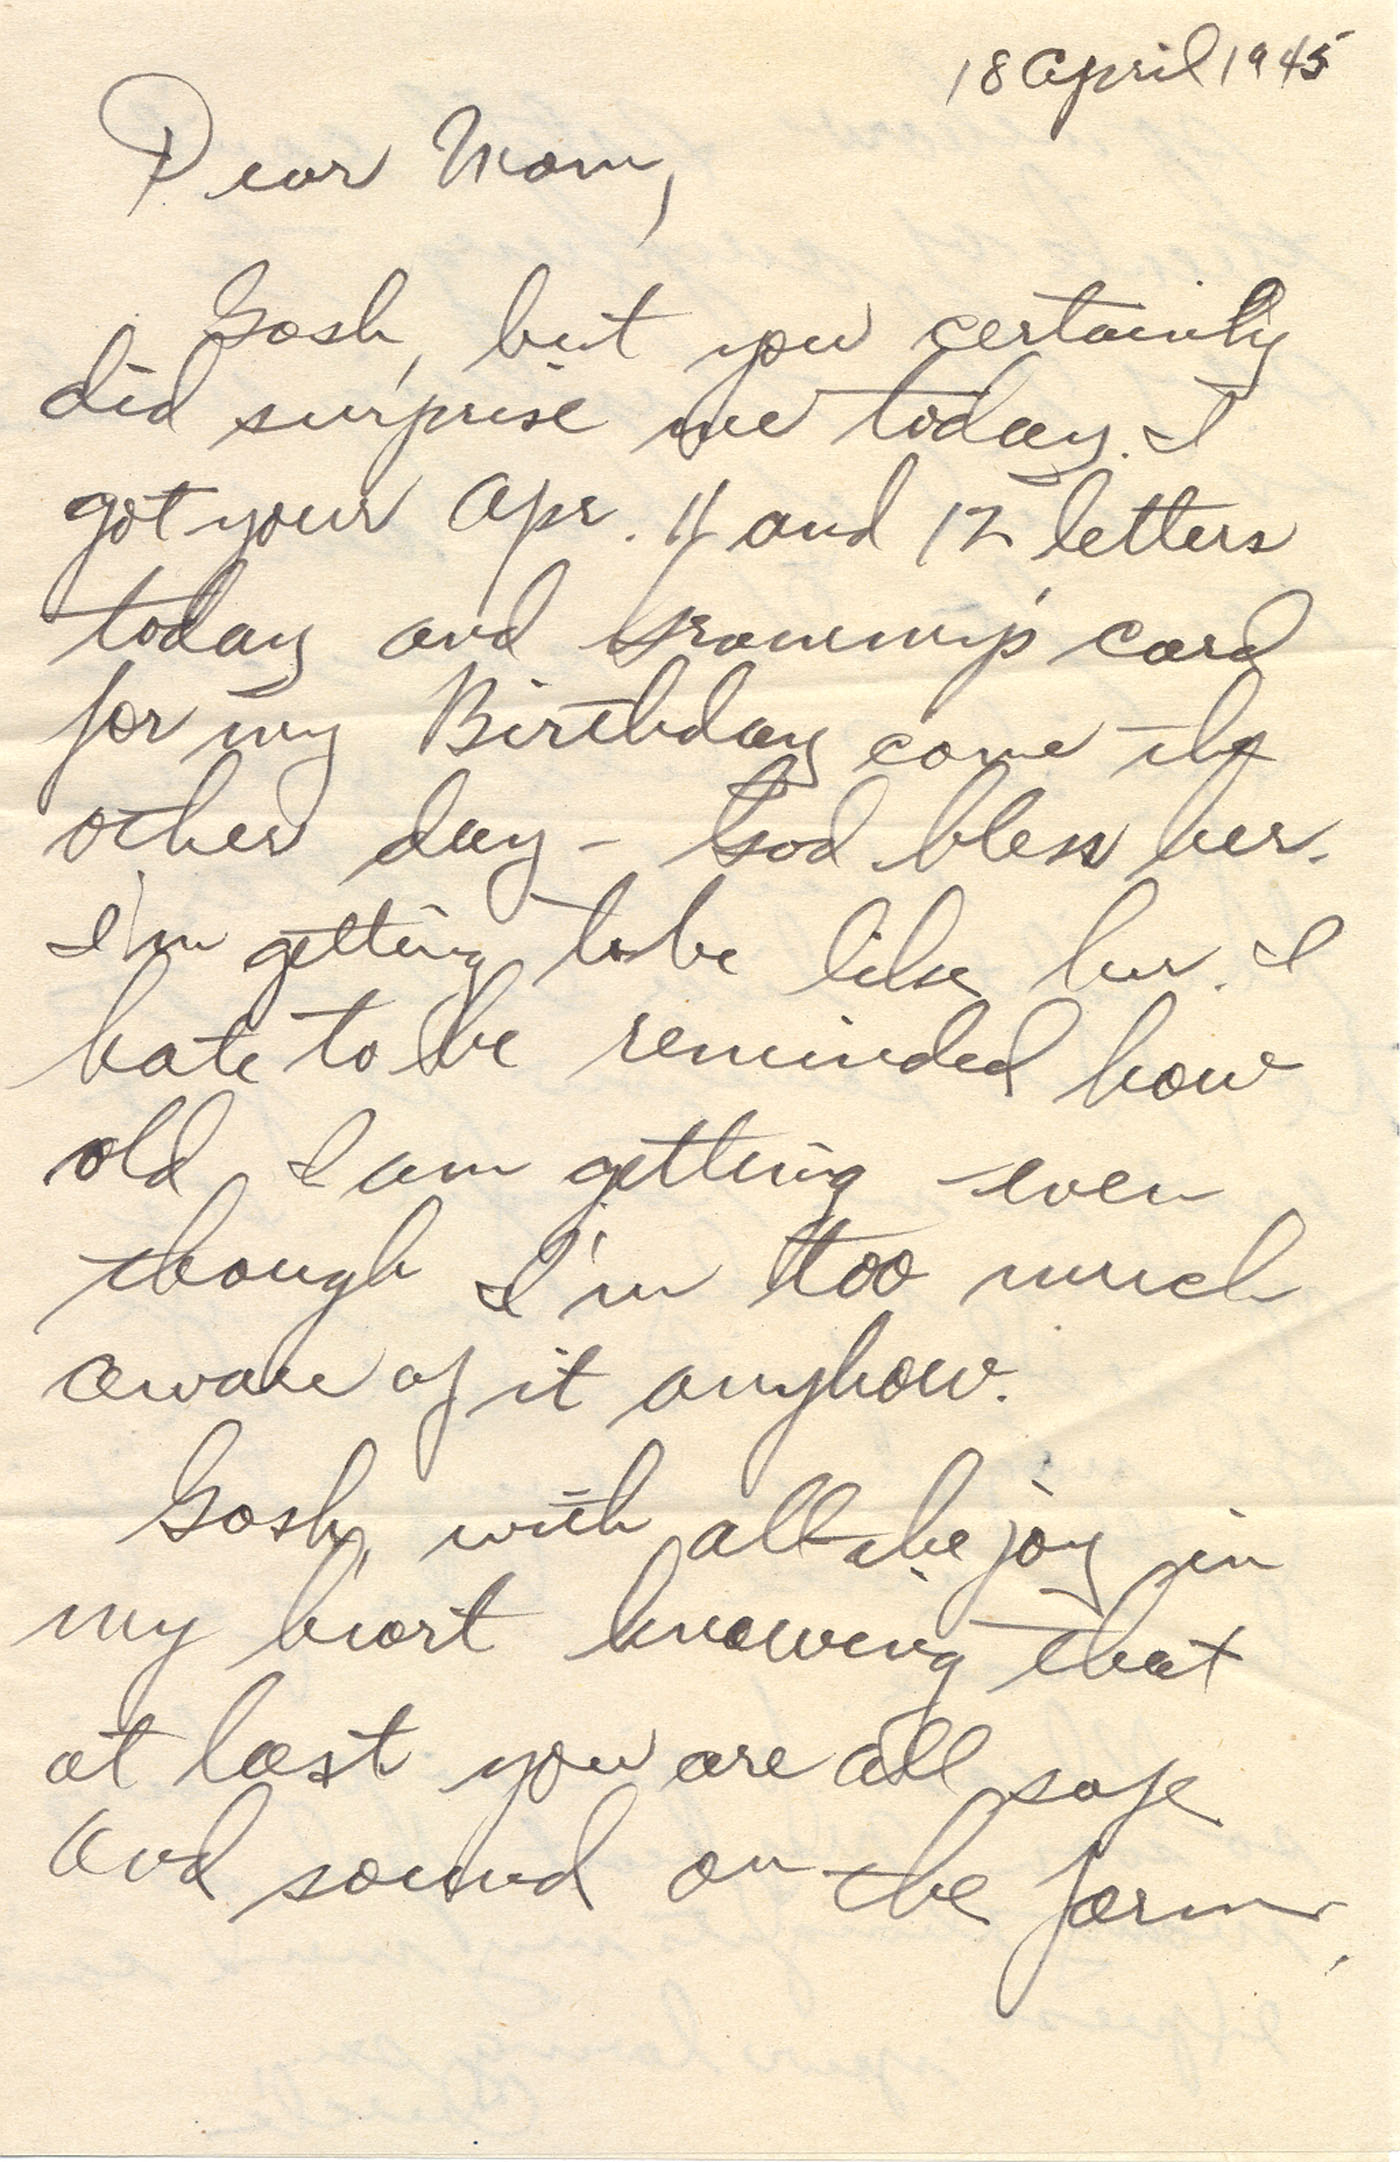 18 April 1945
Dear Mom,
Gosh, but you certainly
did surprise me today. I
got your Apr. 11 and 12 letters
today and Grammp's card
for my Birthday come the
other day - God bless her.
I'm getting to be like her. I
hate to be reminded how
old I am getting even
though I'm too much
aware of it anyhow.
Gosh, with all the joy in
my heart knowing that
at last you are all safe
and sound on the farm,